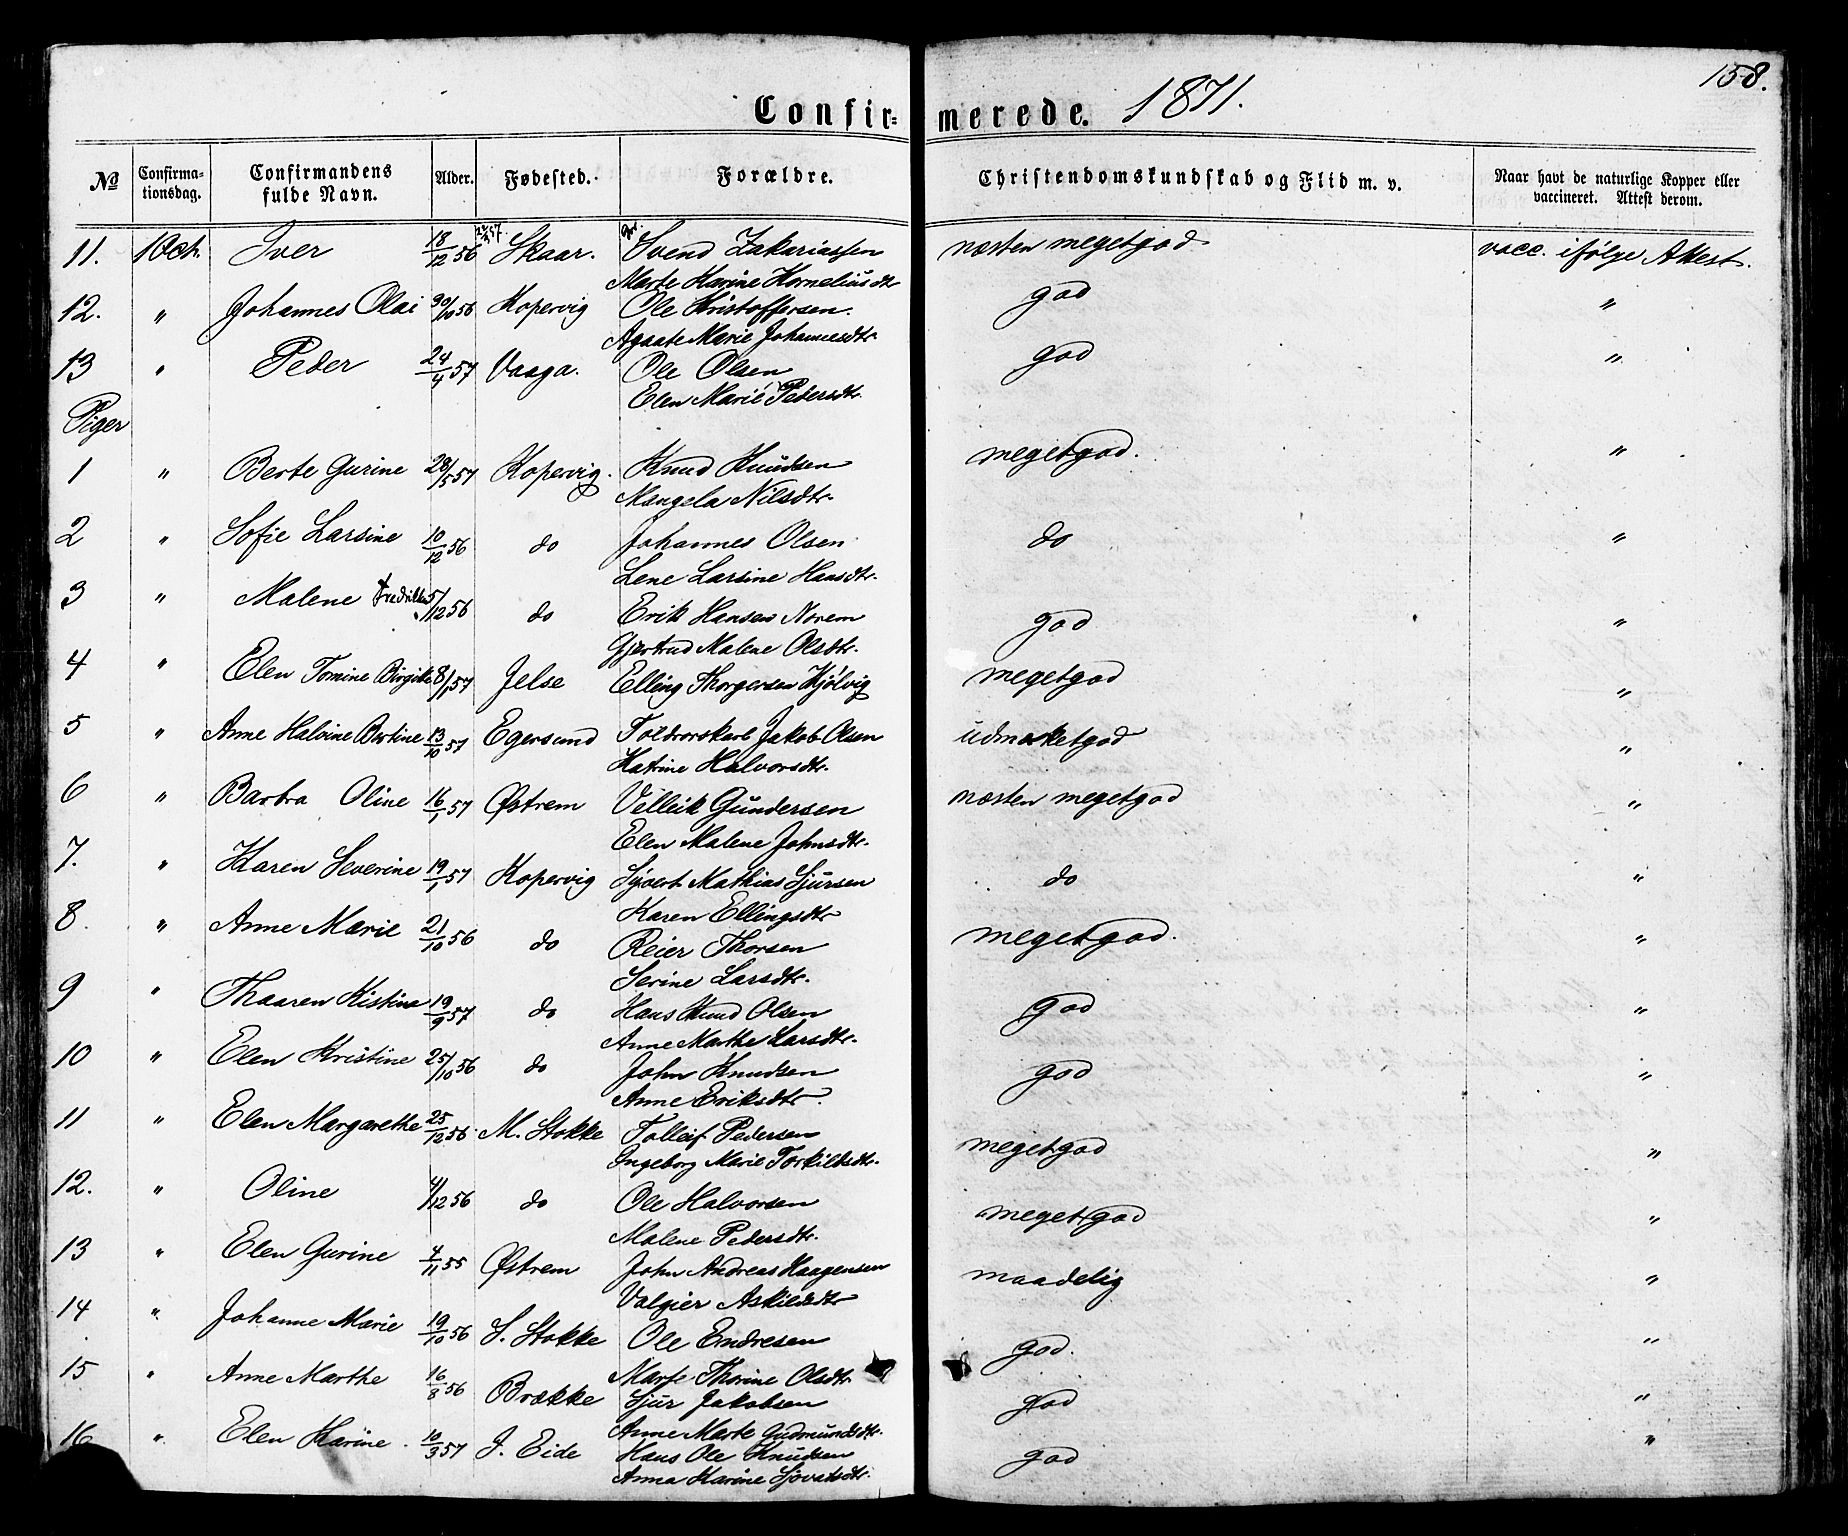 158.
Confirmerede. 1871.
№ Confirmationsdag. Confirmandens fulde Navn. Alder. Fødested. Forældre. Christendomskundskab og Flid m. v. Naar havt de naturlige Kopper eller vaccineret. Attest derom.
11. 1 Oct. Iver 18/12 56 Skaar. Svend Zakariassen næsten megetgod vacc. ifølge Attest.
Marte Karine Korneliusdtr
12. " Johannes Olai 30/10 56 Kopervig Ole Kristoffersen. god "
Agaate Marie Johannesdtr
13 " Peder 24/4 57 Vaaga. Ole Olsen god "
Elen Marie Pedersdtr.
Piger
1 " Berte Gurine 28/5 57 Kopervig. Knud Knudsen megetgod. "
Mangela Nilsdtr.
2 " Sofie Larsine 10/12 56 do Johannes Olsen do "
Lene Larsine Hansdtr.
3 " Malene Fredrikke 5/12 56 do Erik Hansen Norem god "
Gjertrud Malene Olsdtr.
4 " Elen Tomine Birgitte 8/1 57 Jelse Elling Thorgersen Kjølvig megetgod "
5 " Anne Halvine Bertine 13/10 57 Egersund Toldrorskarl Jakob Olsen udmærketgod "
Katrine Halvorsdtr.
6 " Barbra Oline 16/1 57 Østrem Velleik Gundersen næsten megetgod "
Elen Malene Johnsdtr.
7. " Karen Severine 19/1 57 Kopervig Sjovert Mathias Sjursen do "
Karen Ellingsdtr
8. " Anne Marie 21/10 56 do Reier Thorsen megetgod. "
Serine Larsdtr.
9 " Thaaren Kistine 19/9 57 do Hans Knud Olsen god "
Anne Marthe Larsdtr.
10 " Elen Kristine 25/10 56 do John Knudsen god "
Anne Eriksdtr.
11 " Elen Margarethe 25/12 56. M. Stokke Tolleif Pedersen megetgod "
Ingeborg Marie Torkildsdtr.
12. " Oline 4/12 56 do Ole Halvorsen megetgod "
Malene Pedersdtr.
13 " Elen Gurine 4/11 55 Østrem John Andreas Haagensen maadelig "
Valgier Askildsdtr
14 " Johanne Marie 19/10 56 S. Stokke Ole Endresen god. "
Marte Thorine Olsdtr
15 " Anne Marthe 16/8 56 Brække Sjur Jakobsen god "
Anne Marte Gudmundsdtr.
16 " Elen Karine. 10/3 57 I. Eide Hans Ole Knudsen god "
Anna Karine Sjovatsdtr.